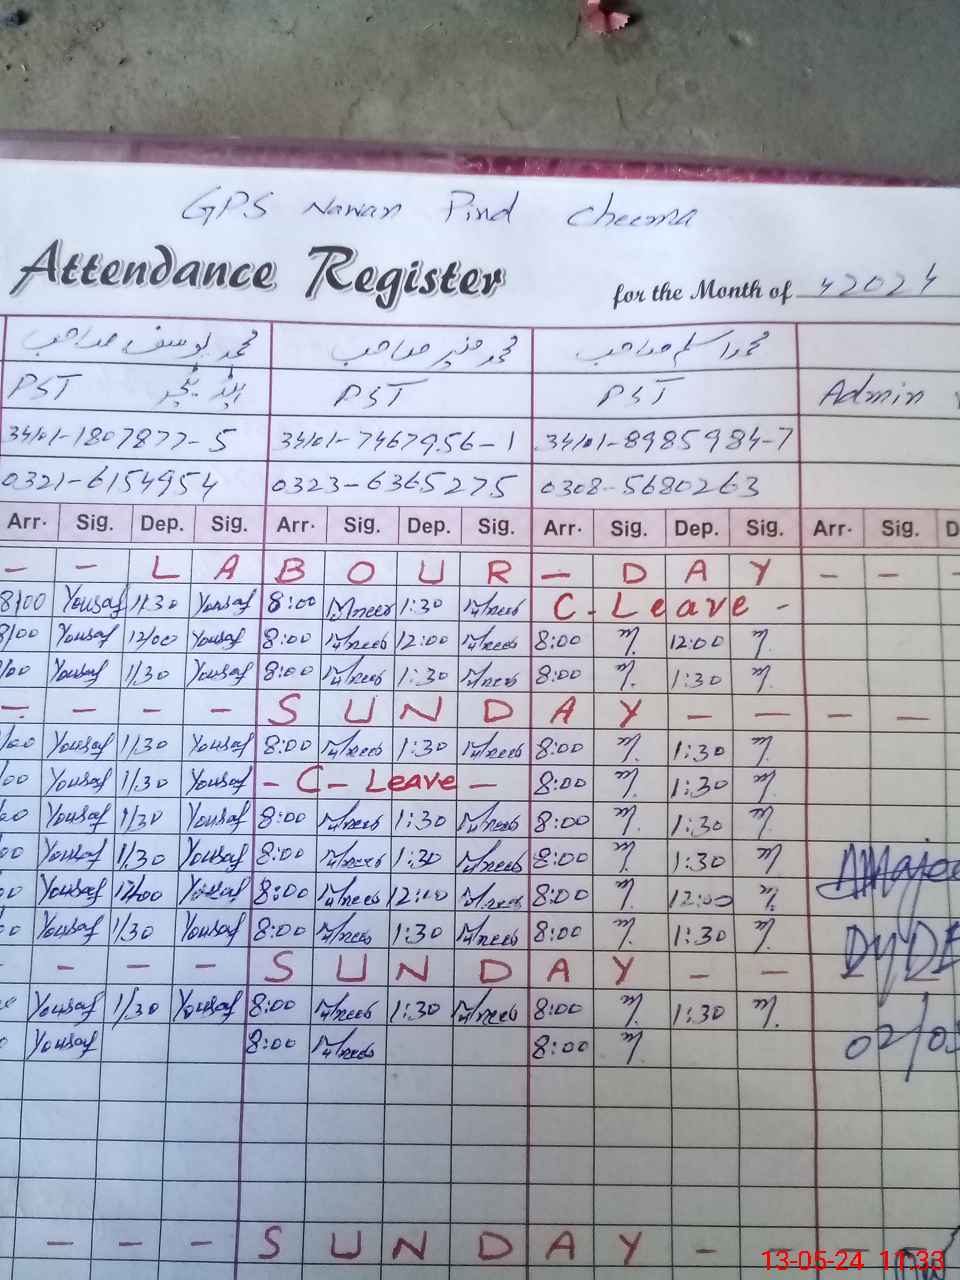 GPS Nawan Pind Cheema
Attendance Register for the Month of 42024
محمد یوسف صاحب محمد منیر صاحب محمد اسلم صاحب
PST ہیڈ ٹیچر PST PST Admin
34101-1807877-5 34101-7467956-1 34101-8985984-7
0321-6154954 0323-6365275 0308-5680263
Arr. Sig. Dep. Sig. Arr. Sig. Dep. Sig. Arr. Sig. Dep. Sig. Arr. Sig. D
- - L A B O U R - D A Y - - -
8/00 Yousaf 1/30 Yousaf 8:00 Muneeb 1:30 Muneeb C - Leave -
8/00 Yousaf 12/00 Yousaf 8:00 Muneeb 12:00 Muneeb 8:00 12:00
/00 Yousaf 1/30 Yousaf 8:00 Muneeb 1:30 Muneeb 8:00 1:30
- - - - S U N D A Y - - - -
/00 Yousaf 1/30 Yousaf 8:00 Muneeb 1:30 Muneeb 8:00 1:30
00 Yousaf 1/30 Yousaf - C - Leave - 8:00 1:30
00 Yousaf 1/30 Yousaf 8:00 Muneeb 1:30 Muneeb 8:00 1:30
00 Yousaf 1/30 Yousaf 8:00 Muneeb 1:30 Muneeb 8:00 1:30
0 Yousaf 12/00 Yousaf 8:00 Muneeb 12:00 Muneeb 8:00 12:00
0 Yousaf 1/30 Yousaf 8:00 Muneeb 1:30 Muneeb 8:00 1:30
- - - - S U N D A Y - -
Yousaf 1/30 Yousaf 8:00 Muneeb 1:30 Muneeb 8:00 1:30
Yousaf 8:00 Muneeb 8:00 02/05
- - - S U N D A Y -
13-05-24 11:33